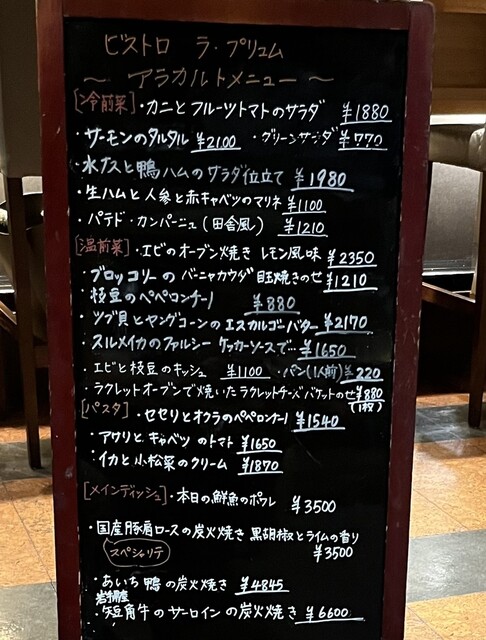 ビストロ ラ・プリュム
～ アラカルトメニュー ～
[冷前菜]・カニとフルーツトマトのサラダ ¥1880
・サーモンのタルタル ¥2100 ・グリーンサラダ ¥770
・水ナスと鴨ハムのサラダ仕立て ¥1980
・生ハムと人参と赤キャベツのマリネ ¥1100
・パテド・カンパーニュ(田舎風) ¥1210
[温前菜]・エビのオーブン焼き レモン風味 ¥2350
・ブロッコリーのバーニャカウダ 目玉焼きのせ ¥1210
・枝豆のペペロンチーノ ¥880
・ツブ貝とヤングコーンのエスカルゴバター ¥2170
・スルメイカのファルシー ケッカーソースで… ¥1650
・エビと枝豆のキッシュ ¥1100 ・パン(1人前) ¥220
・ラクレットオーブンで焼いたラクレットチーズバケットのせ ¥880
(1枚)
[パスタ]・セセリとオクラのペペロンチーノ ¥1540
・アサリとキャベツのトマト ¥1650
・イカと小松菜のクリーム ¥1870
[メインディッシュ]・本日の鮮魚のポワレ ¥3500
・国産豚肩ロースの炭火焼き 黒胡椒とライムの香り
¥3500
スペシャリテ
・あいち鴨の炭火焼き ¥4845
岩手県産
・短角牛のサーロインの炭火焼き ¥6600